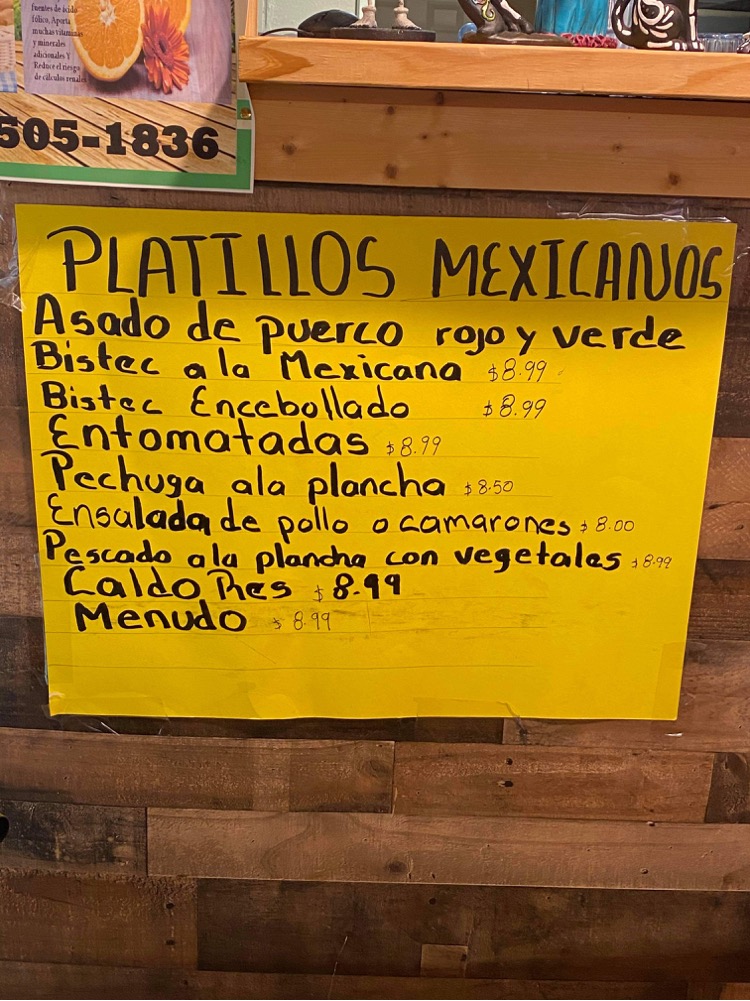 fuentes de ácido
fólico, Aporta
muchas vitaminas
y minerales
adicionales Y
Reduce el riesgo
de cálculos renales
505-1836
PLATILLOS MEXICANOS
Asado de puerco rojo y verde
Bistec a la Mexicana $8.99
Bistec Encebollado $8.99
Entomatadas $8.99
Pechuga ala plancha $8.50
Ensalada de pollo o camarones $8.00
Pescado ala plancha con vegetales $8.99
Caldo Res $8.99
Menudo $8.99